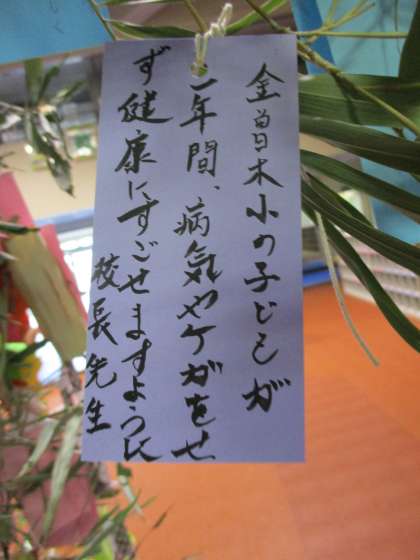 金曽木小の子どもが
一年間、病気やケガをせ
ず健康にすごせますように
校長先生